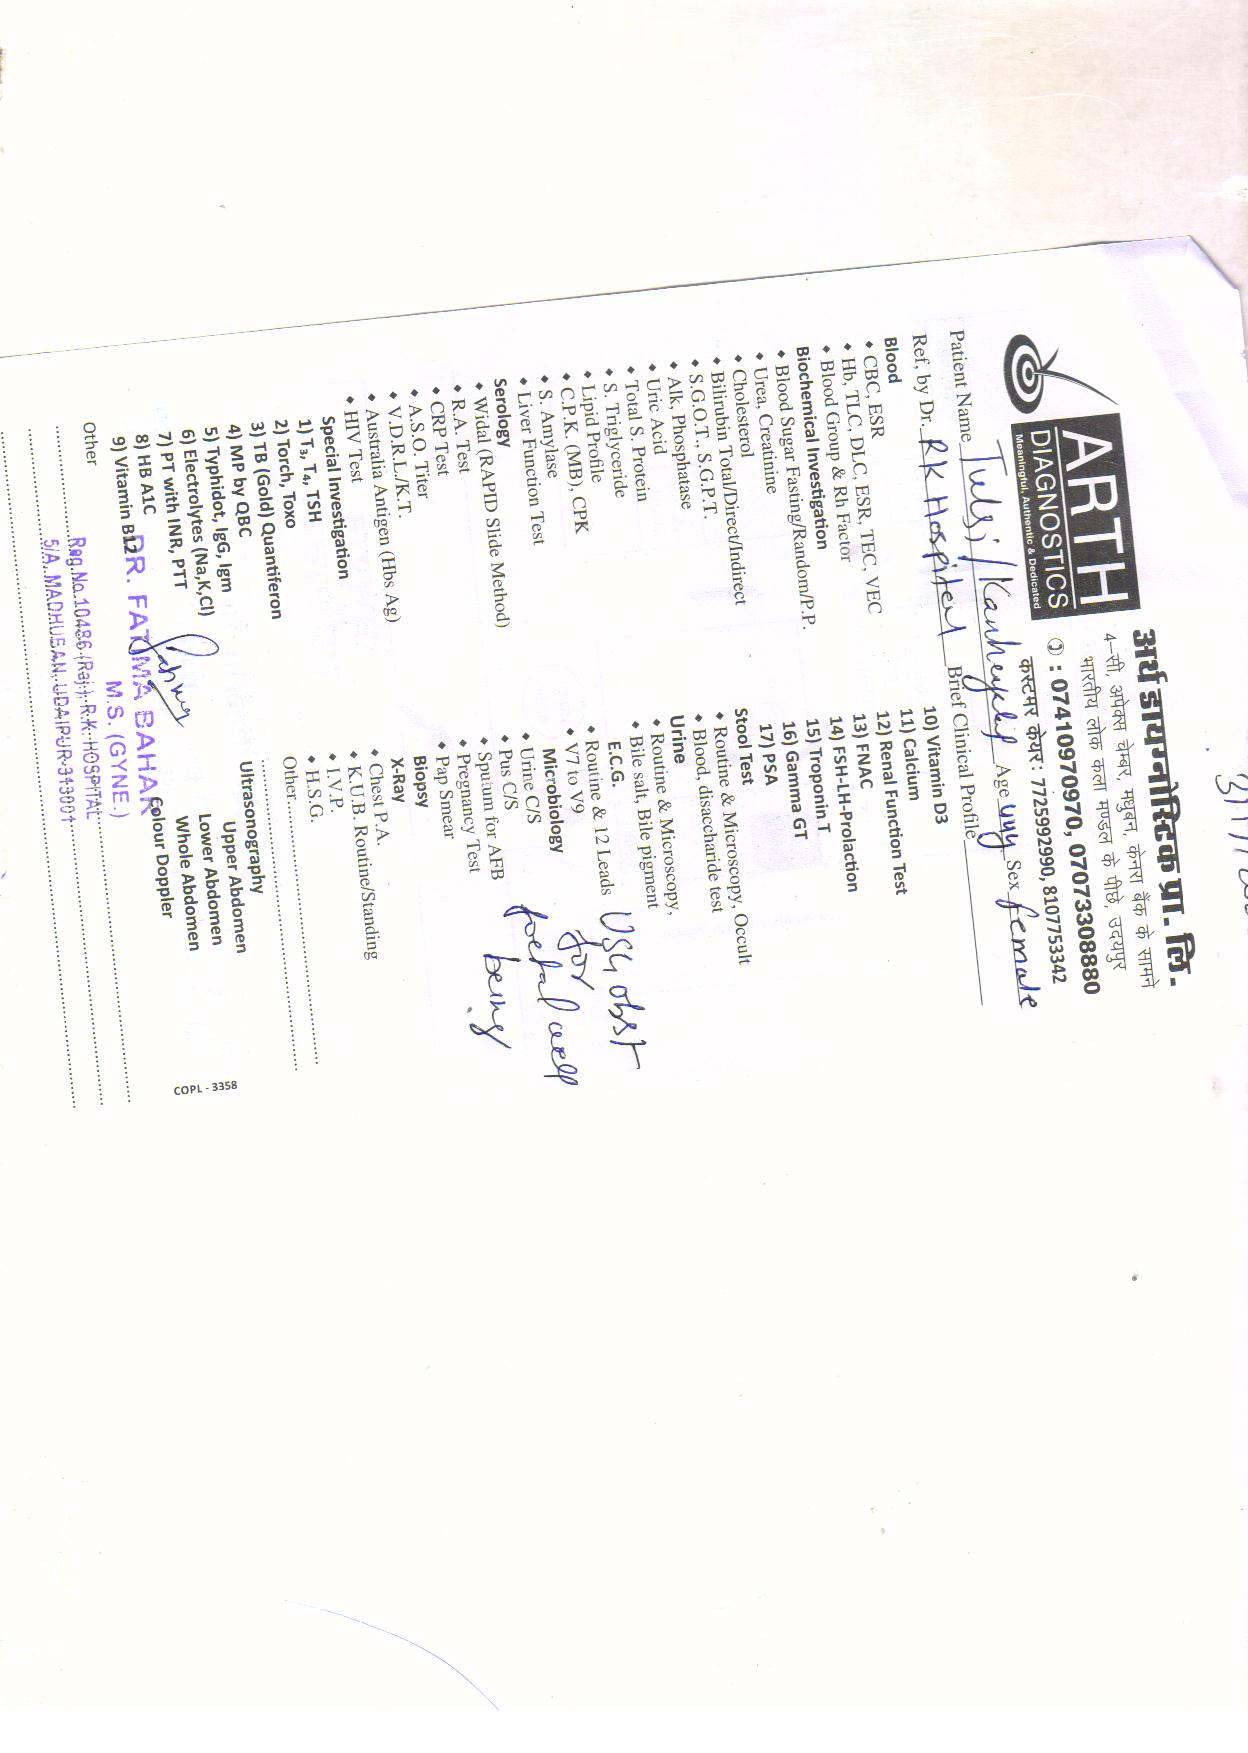 3/1/
अर्थ डायग्नोस्टिक प्रा. लि.
4–सी, अपेक्स चेम्बर, मधुबन, केनरा बैंक के सामने
भारतीय लोक कला मण्डल के पीछे, उदयपुर
: 07410970970, 07073308880
कस्टमर केयर : 7725992990, 8107753342
ARTH
DIAGNOSTICS
Meaningful, Authentic & Dedicated
Patient Name Tulsi / Kanheyalal Age Sex female
Ref, by Dr. RK Hospital Brief Clinical Profile
Blood
♦ CBC, ESR
♦ Hb, TLC, DLC, ESR, TEC, VEC
♦ Blood Group & Rh Factor
Biochemical Investigation
♦ Blood Sugar Fasting/Random/P.P.
♦ Urea, Creatinine
♦ Cholesterol
♦ Bilirubin Total/Direct/Indirect
♦ S.G.O.T., S.G.P.T.
♦ Alk, Phosphatase
♦ Uric Acid
♦ Total S. Protein
♦ S. Triglyceride
♦ Lipid Profile
♦ C.P.K. (MB), CPK
♦ S. Amylase
♦ Liver Function Test
Serology
♦ Widal (RAPID Slide Method)
♦ R.A. Test
♦ CRP Test
♦ A.S.O. Titer
♦ V.D.R.L./K.T.
♦ Australia Antigen (Hbs Ag)
♦ HIV Test
Special Investigation
1) T₃, T₄, TSH
2) Torch, Toxo
3) TB (Gold) Quantiferon
4) MP by QBC
5) Typhidot, IgG, Igm
6) Electrolytes (Na,K,Cl)
7) PT with INR, PTT
8) HB A1C
9) Vitamin B12
Other
10) Vitamin D3
11) Calcium
12) Renal Function Test
13) FNAC
14) FSH-LH-Prolaction
15) Troponin T
16) Gamma GT
17) PSA
Stool Test
♦ Routine & Microscopy, Occult
♦ Blood, disaccharide test
Urine
♦ Routine & Microscopy,
♦ Bile salt, Bile pigment
E.C.G.
♦ Routine & 12 Leads
♦ V7 to V9
Microbiology
♦ Urine C/S
♦ Pus C/S
♦ Sputum for AFB
♦ Pregnancy Test
♦ Pap Smear
Biopsy
X-Ray
♦ Chest P.A.
♦ K.U.B. Routine/Standing
♦ I.V.P.
♦ H.S.G.
Other
USG obst
for
foetal well
being
Ultrasonography
Upper Abdomen
Lower Abdomen
Whole Abdomen
Colour Doppler
COPL - 3358
DR. FATIMA BAHAR
M.S. (GYNE.)
Reg.No.10486 (Raj.) R.K. HOSPITAL
5/A, MADHUBAN, UDAIPUR-313001